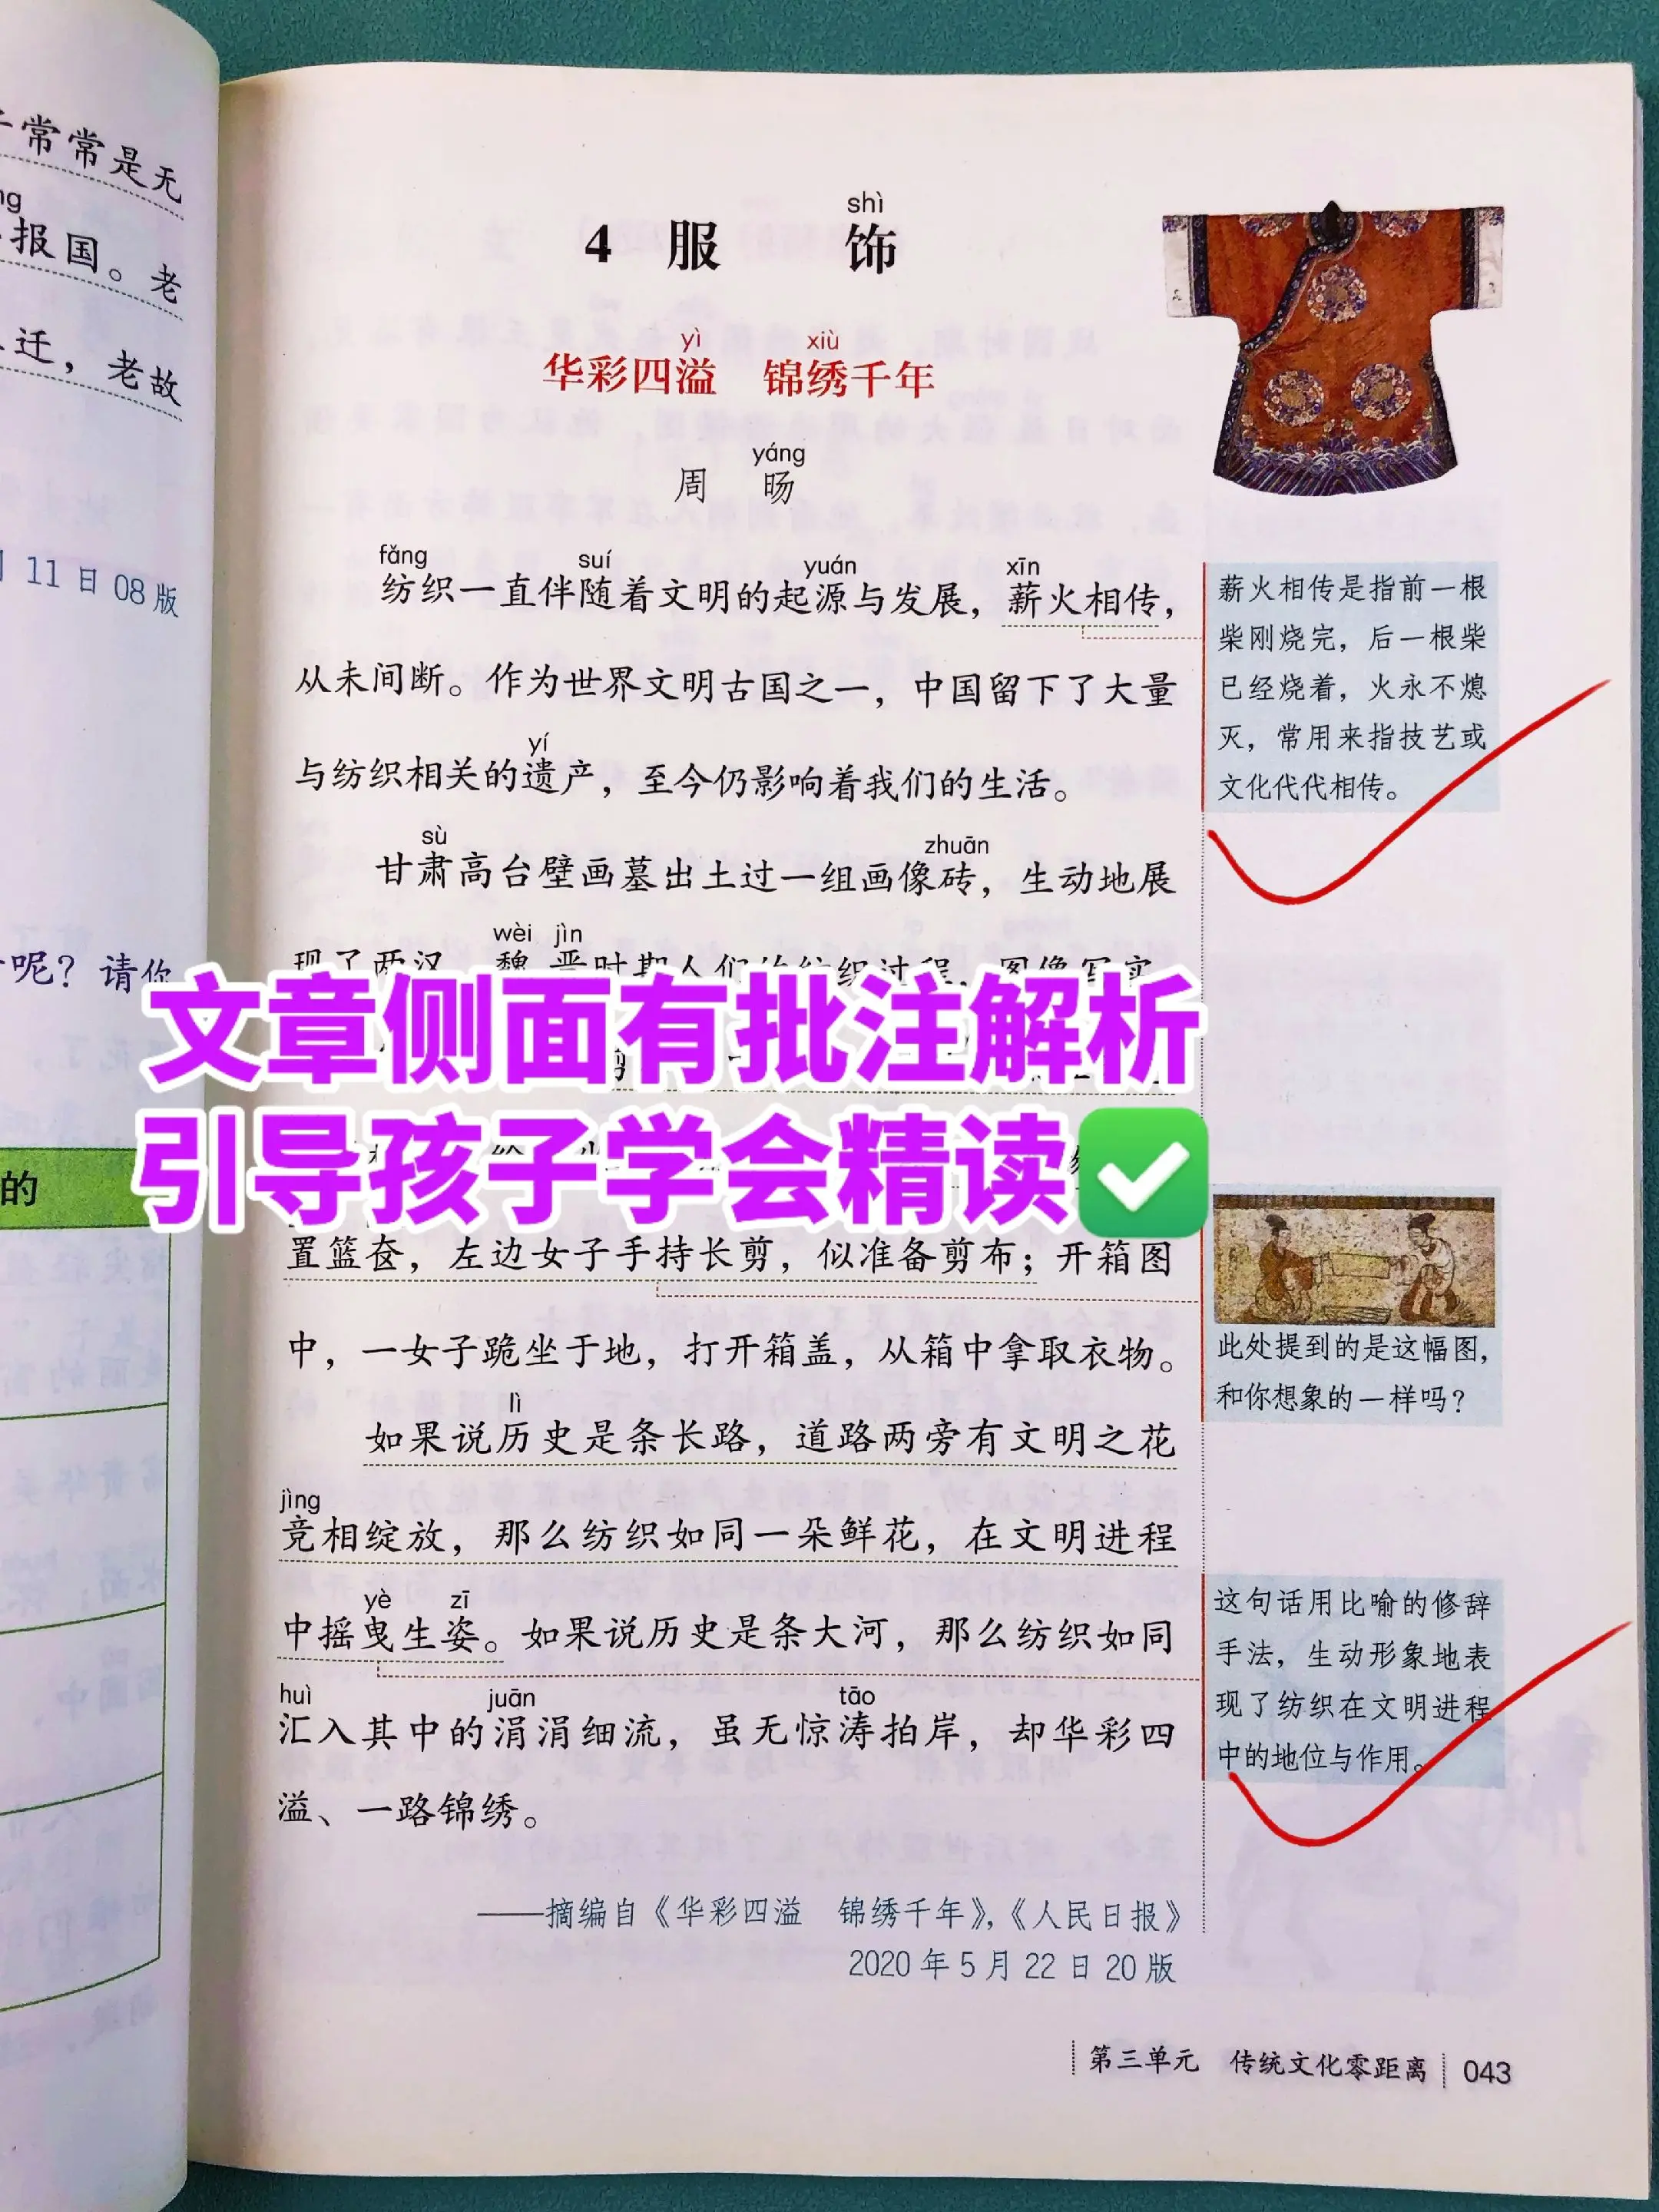 常常是无
报国。老
迁，老故
11日08版
呢？请你
的
shì
4 服 饰
yì xiù
华彩四溢 锦绣千年
yáng
周 旸
fǎng suí yuán xīn
纺织一直伴随着文明的起源与发展，薪火相传，
从未间断。作为世界文明古国之一，中国留下了大量
yí
与纺织相关的遗产，至今仍影响着我们的生活。
sù zhuān
甘肃高台壁画墓出土过一组画像砖，生动地展
wèi jìn
现了两汉、魏晋时期人们的纺织过程，图像写实
文章侧面有批注解析
引导孩子学会精读✅
置篮奁，左边女子手持长剪，似准备剪布；开箱图
中，一女子跪坐于地，打开箱盖，从箱中拿取衣物。
lì
如果说历史是条长路，道路两旁有文明之花
jìng
竞相绽放，那么纺织如同一朵鲜花，在文明进程
yè zī
中摇曳生姿。如果说历史是条大河，那么纺织如同
huì juān tāo
汇入其中的涓涓细流，虽无惊涛拍岸，却华彩四
溢、一路锦绣。
——摘编自《华彩四溢 锦绣千年》，《人民日报》
2020年5月22日20版
薪火相传是指前一根
柴刚烧完，后一根柴
已经烧着，火永不熄
灭，常用来指技艺或
文化代代相传。
此处提到的是这幅图，
和你想象的一样吗？
这句话用比喻的修辞
手法，生动形象地表
现了纺织在文明进程
中的地位与作用。
第三单元 传统文化零距离 043